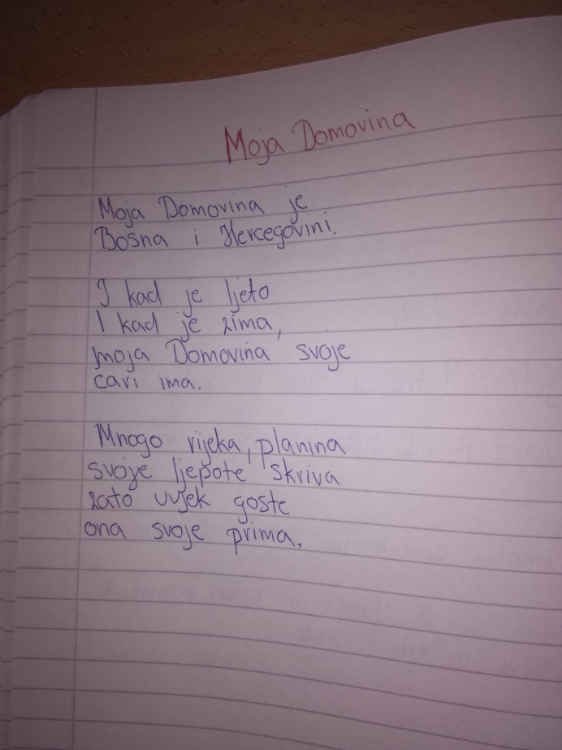 Moja Domovina
Moja Domovina je
Bosna i Hercegovini.
I kad je ljeto
I kad je zima,
moja Domovina svoje
čari ima.
Mnogo rijeka, planina
svoje ljepote skriva
zato uvjek goste
ona svoje prima.